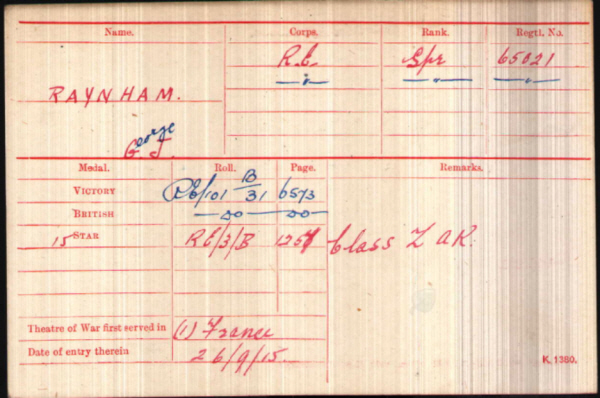 Name. Corps. Rank. Regtl. No.
R.E. Spr 65021
RAYNHAM.
George J.
Medal. Roll. Page. Remarks.
VICTORY RE/101 B/31 6573
BRITISH —do— —do—
15 STAR RE/3/B Class Z AR.
Theatre of War first served in (1) France
Date of entry therein 26/9/15.
K. 1380.